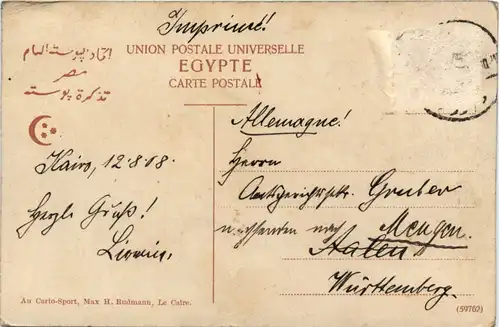 Imprimé!
اتحاد پوستة العام
مصر
تذكرة پوستة
UNION POSTALE UNIVERSELLE
EGYPTE
CARTE POSTALE
Kairo, 12.8.08.
Herzl. Gruß!
Allemagne!
Herrn
Amtsgerichtssekr. Gruber
nachsenden nach Mengen
Aalen
Württemberg.
Au Carto-Sport, Max H. Rudmann, Le Caire.
(59762)